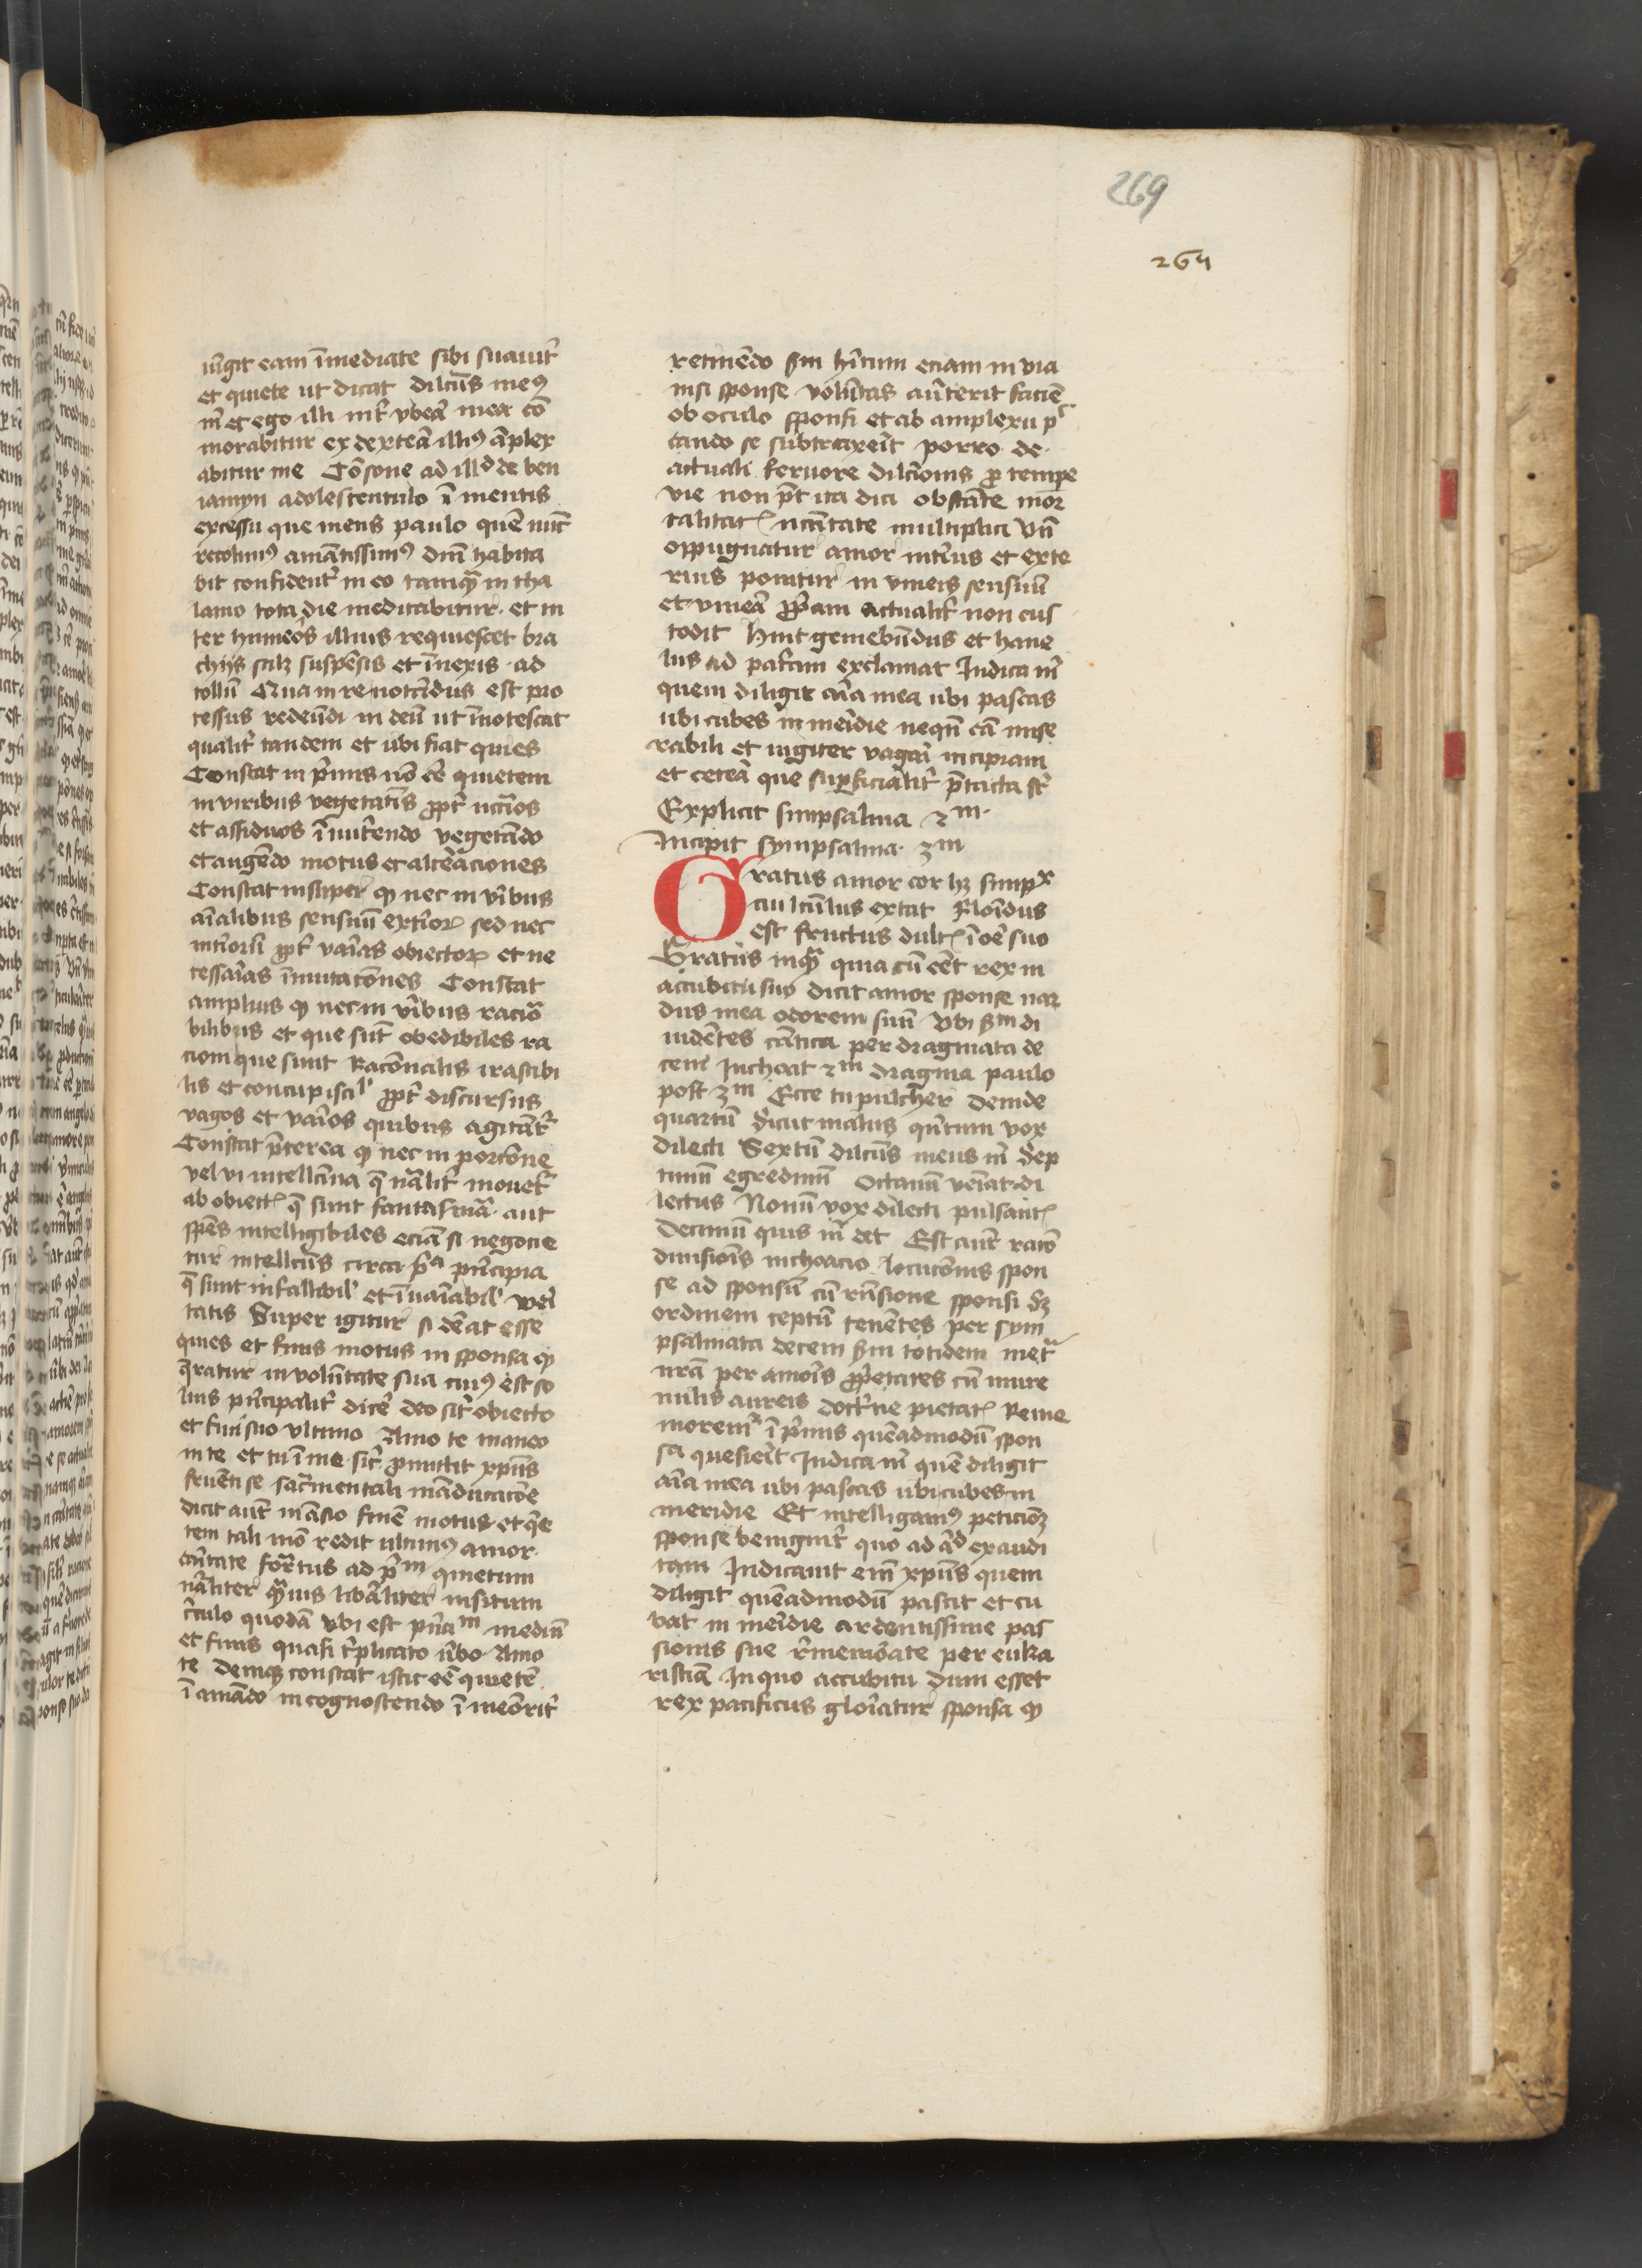 269
269
iungit eam īmediate sibi suauit᷑
et quiete ut dicat dilcūs meꝰ
m̄ et ego illi int᷑ ubeā mea cō
morabitur ex dexteā illiꝰ āplex
abitur me Cōsone ad illd de ben
iamyn adolescentulo ī mentis
excessu que mens paulo quē nūc
recolimꝰ amātissimꝰ dnī habita
bit confident᷑ in eo tamqᷓ in tha
lamo tota die meditabitur et in
ter humeōs illius requiescet bra
chijs scilꝫ suspēsis et īnexis ad
collū Qua in re notādus est pro
cessus redeūdi in deū ut īnotescat
qualit᷑ tandem et ubi fiat quies
Constat in p̄mis nō cē quietem
in viribus vegetatīs ꝓpt᷑ nctīos
et assiduos ī nut᷑endo vegetādo
et augēdo motus et alteāciones
Constat insuper ꝙ nec in vībus
aīalibus sensuū extioꝝ sed nec
intioꝝ ꝓpt᷑ vaīas obiectoꝝ et ne
cessaīas īmutacōnes Constat
amplius ꝙ nec in vībus racio
bilibus et que sūt obedibiles ra
cioni que sunt Racōnalis irascibi
lis et concupiscil̓ ꝓpt᷑ discursus
vagos et vaīos quibus agitāt᷑
Constat p̄terea ꝙ nec in porcōne
vel vi intellcīua q̄ nālit᷑ mouet᷑
ab obiectꝭ q̄ sunt fantasmāa aut
spēs intelligibiles eciā si negocie
tur intellcūs circa p̄a p̄ncipia
q̄ sunt infallibil̓ et īuaīabil̓ veī
tatis Super igitur si dēat esse
quies et finis motus in sponsa ꝙ
q̄ratur in volūtate sua cuiꝰ est so
lius p̄ncipalit᷑ dicē deo sic obiecto
et fini suo vltimo Amo te maneo
in te et tu ī me sic ꝓmittit xpūs
fruēti se sacᷓmentali māducacōe
dicit aut᷑ māsio finē motus et qīe
tem tali mō redit ultimꝰ amor
cāitate formatus ad p̄m quietum
nāliter qᷓuis libāliter insitum
cīculo quodā vbi est p̄ncim mediū
et finis quasi t᷑plicato ūbo Amo
te Deniqꝫ constat istic cē quietē
ī amādo in cognoscendo ī meōrit᷑
retinēdo sm̄ hītum eciam in via
nisi sponse volūtas auūterit faciē
ob oculo sponsi et ab amplexu pᷓ
cando se subtraxeīt porro de
actuali feruore dilcīonis ꝓ tempe
vie non pt̄ ita dici obstāte mor
talitatꝭ ncītate multiplici Vn̄
oppugnatur amor intius et exte
rius ponitur in vineis sensuū
et vineā ꝓp̄am actualit᷑ non cus
todit hinc gemebūdus et hane
lus ad pat᷑am exclamat Indica m̄
quem diligit aīa mea ubi pascas
ubi cubes in meīdie neqn̄ tā mise
rabili et iugiter vagaī incipiam
et ceteā que sup̄ficialit᷑ p̄tacta st̄
Explicit simpsalma 2m
Incipit sympsalma 3m
Gratus amor cor hꝫ simpx
cui lcūlus extat Floīdus
est fructus dulcꝭ ī oē suo
Gratus inqᷓ quia cū eēt rex in
accubitu suo dicit amor sponse nar
dus mea odorem suū Vbi sm̄ di
uidētes cātica per dragmata de
cem Inchoat 2m dragma paulo
post 3m Ecce tu pulcher deinde
quartū Sicut malus quītum vox
dilecti Sextū dilcūs meus m̄ Sep
timū egredimī Octauū veīat di
lectus Nonū vox dilecti pulsantꝭ
Decimū quis m̄ det Est aut᷑ racō
diuisiōis inchoacio locucōnis spon
se ad sponsū cū rūsione sponsi Sꝫ
ordinem ceptū tenētes per sym
psalmata decem sm̄ totidem met᷑
nrā per amōis ꝓp̄etates cū mure
nulis aureis doct᷑ne pietatꝭ Reme
moremꝰ ī p̄mis quēadmodū spon
sa quesieīt Indica m̄ quē diligit
aīa mea ubi pascas ubi cubes in
meridie Et intelligamꝰ peticioꝫ
sponse benignit᷑ quo ad ad exaudi
tam Indicauit em̄ xpūs quem
diligit quēadmodū pascit et cu
bat in meīdie ardentissime pas
sionis sue r̄memōate per euka
ristiā In quo accubitu dum esset
rex pacificus gloīatur sponsa ꝙ